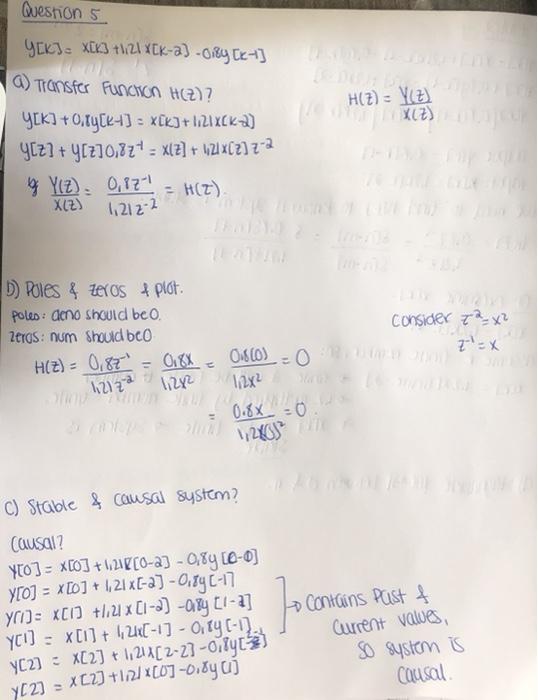 Question 5
y[k] = x[k] + 1,21 x[k-2] - 0,8y[k-1]
a) Transfer Function H(z)?
H(z) = Y(z)/X(z)
y[k] + 0,8y[k-1] = x[k] + 1,21x[k-2]
y[z] + y[z]0,8z⁻¹ = x[z] + 1,21x[z]z⁻²
Y(z)/X(z) = 0,8z⁻¹/1,21z⁻² = H(z).
b) Poles & zeros & plot.
poles: deno should be 0.
zeros: num should be 0
Consider z⁻² = x²
z⁻¹ = x
H(z) = 0,8z⁻¹/1,21z⁻² = 0,8x/1,2x² = 0,8(0)/1,2x² = 0
= 0.8x/1,2x(0)² = 0.
c) Stable & causal system?
Causal?
y[0] = x[0] + 1,21x[0-2] - 0,8y[0-0]
y[0] = x[0] + 1,21x[-2] - 0,8y[-1]
y[1] = x[1] + 1,21x[1-2] - 0,8y[1-2]
y[1] = x[1] + 1,21x[-1] - 0,8y[-1]
y[2] = x[2] + 1,21x[2-2] - 0,8y[2-1]
y[2] = x[2] + 1,21x[0] - 0,8y[1]
Contains past &
current values,
so system is
causal.